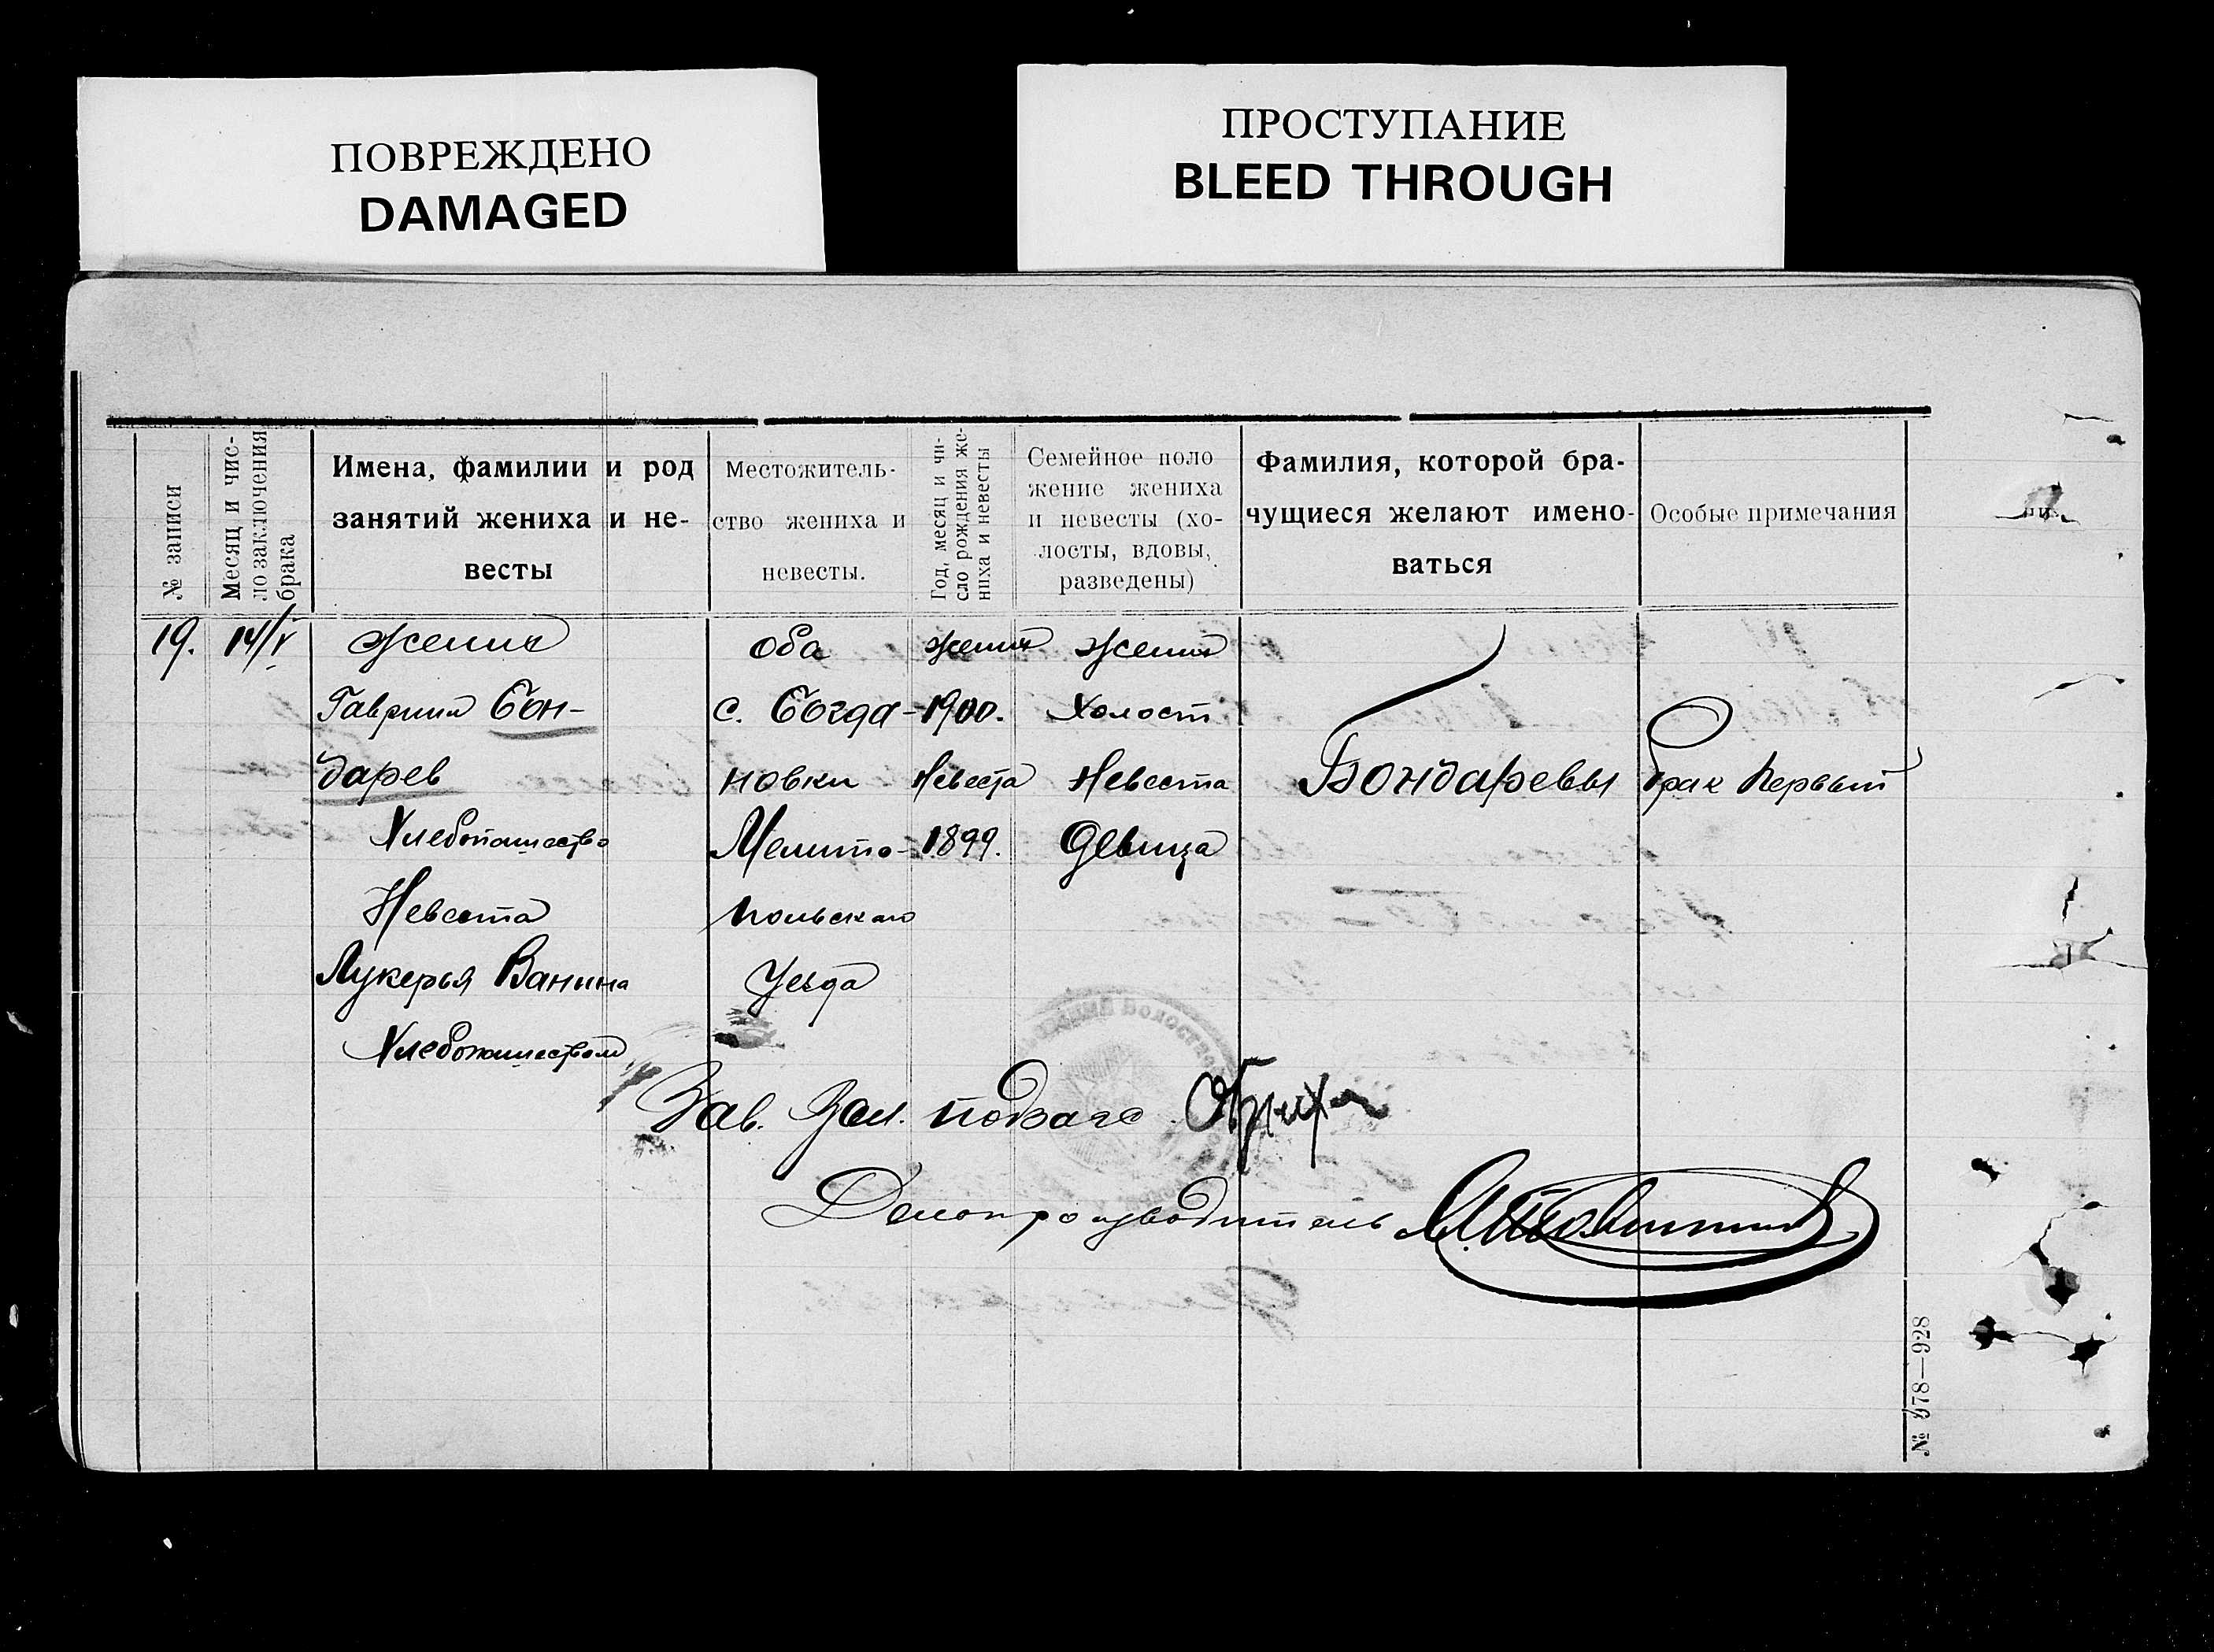 ПОВРЕЖДЕНО
DAMAGED
ПРОСТУПАНИЕ
BLEED THROUGH
№ записи
Месяц и чис-
ло заключения
брака
Имена, фамилии и род
занятий жениха и не-
весты
Местожитель-
ство жениха и
невесты.
Год, месяц и чи-
сло рождения же-
ниха и невесты
Семейное поло
жение жениха
и невесты (хо-
лосты, вдовы,
разведены)
Фамилия, которой бра-
чущиеся желают имено-
ваться
Особые примечания
19.
14/V
Жених
Гавриил Бон-
дарев
Хлебопашество
Невеста
Лукерья Ванина
Хлебопашеством
Оба
с. Богда-
новки
Мелито-
польскаго
Уезда
Жених
1900.
Невеста
1899.
Жених
Холост
Невеста
Девица
Бондаревы
брак первый
Зав. подзагс
Делопроизводитель
№ 978—928